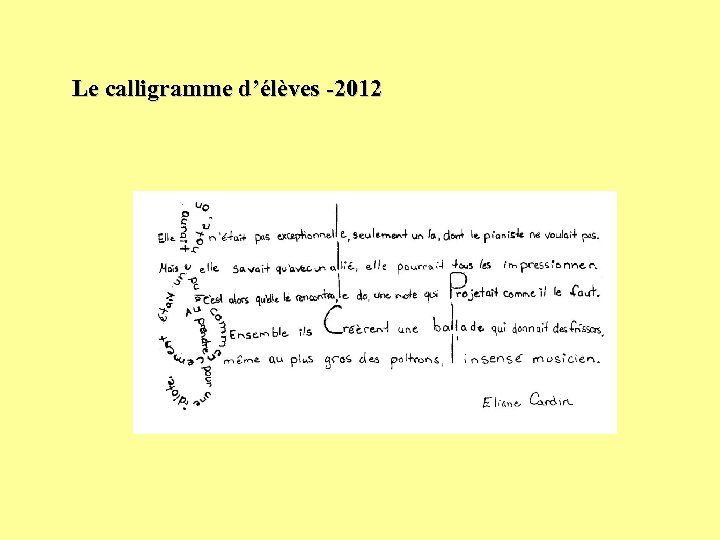 Le calligramme d’élèves -2012
Elle n'était pas exceptionnelle, seulement un la, dont le pianiste ne voulait pas.
Mais elle savait qu'avec un allié, elle pourrait tous les impressionner.
C'est alors qu'elle le rencontra, le do, une note qui Projetait comme il le faut.
Ensemble ils Créèrent une ballade qui donnait des frissons,
même au plus gros des poltrons, l'insensé musicien.
Eliane Cardin
on aurait pu la prendre pour une idiote.
commencement était un